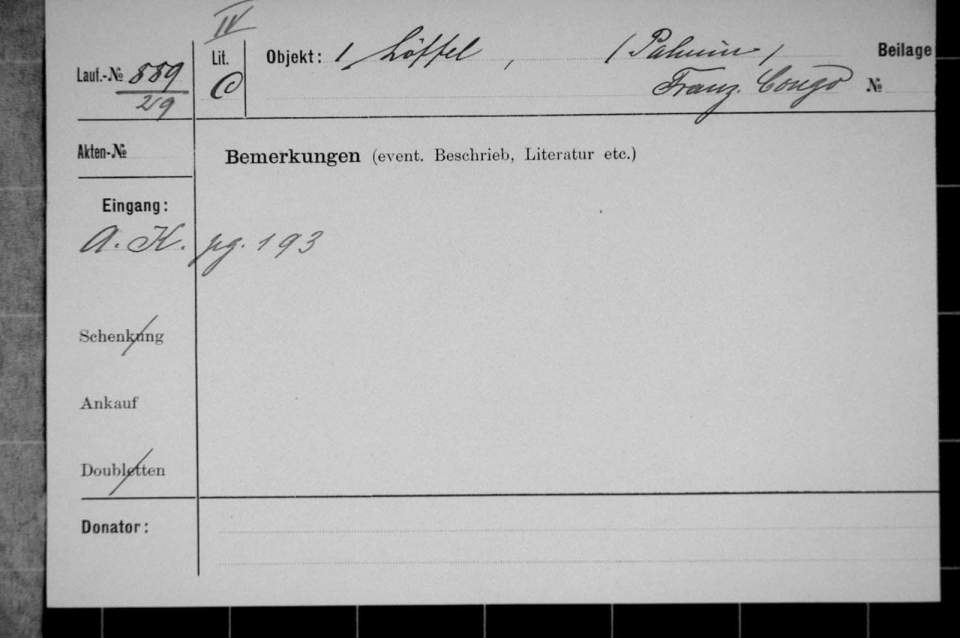 IV
Lauf.-№ 889
29
Lit.
C
Objekt: 1 Löffel, (Pahuin)
Franz. Congo
Beilage
№
Akten-№
Bemerkungen (event. Beschrieb, Literatur etc.)
Eingang:
A. K. pg. 193
Schenkung
Ankauf
Doubletten
Donator: